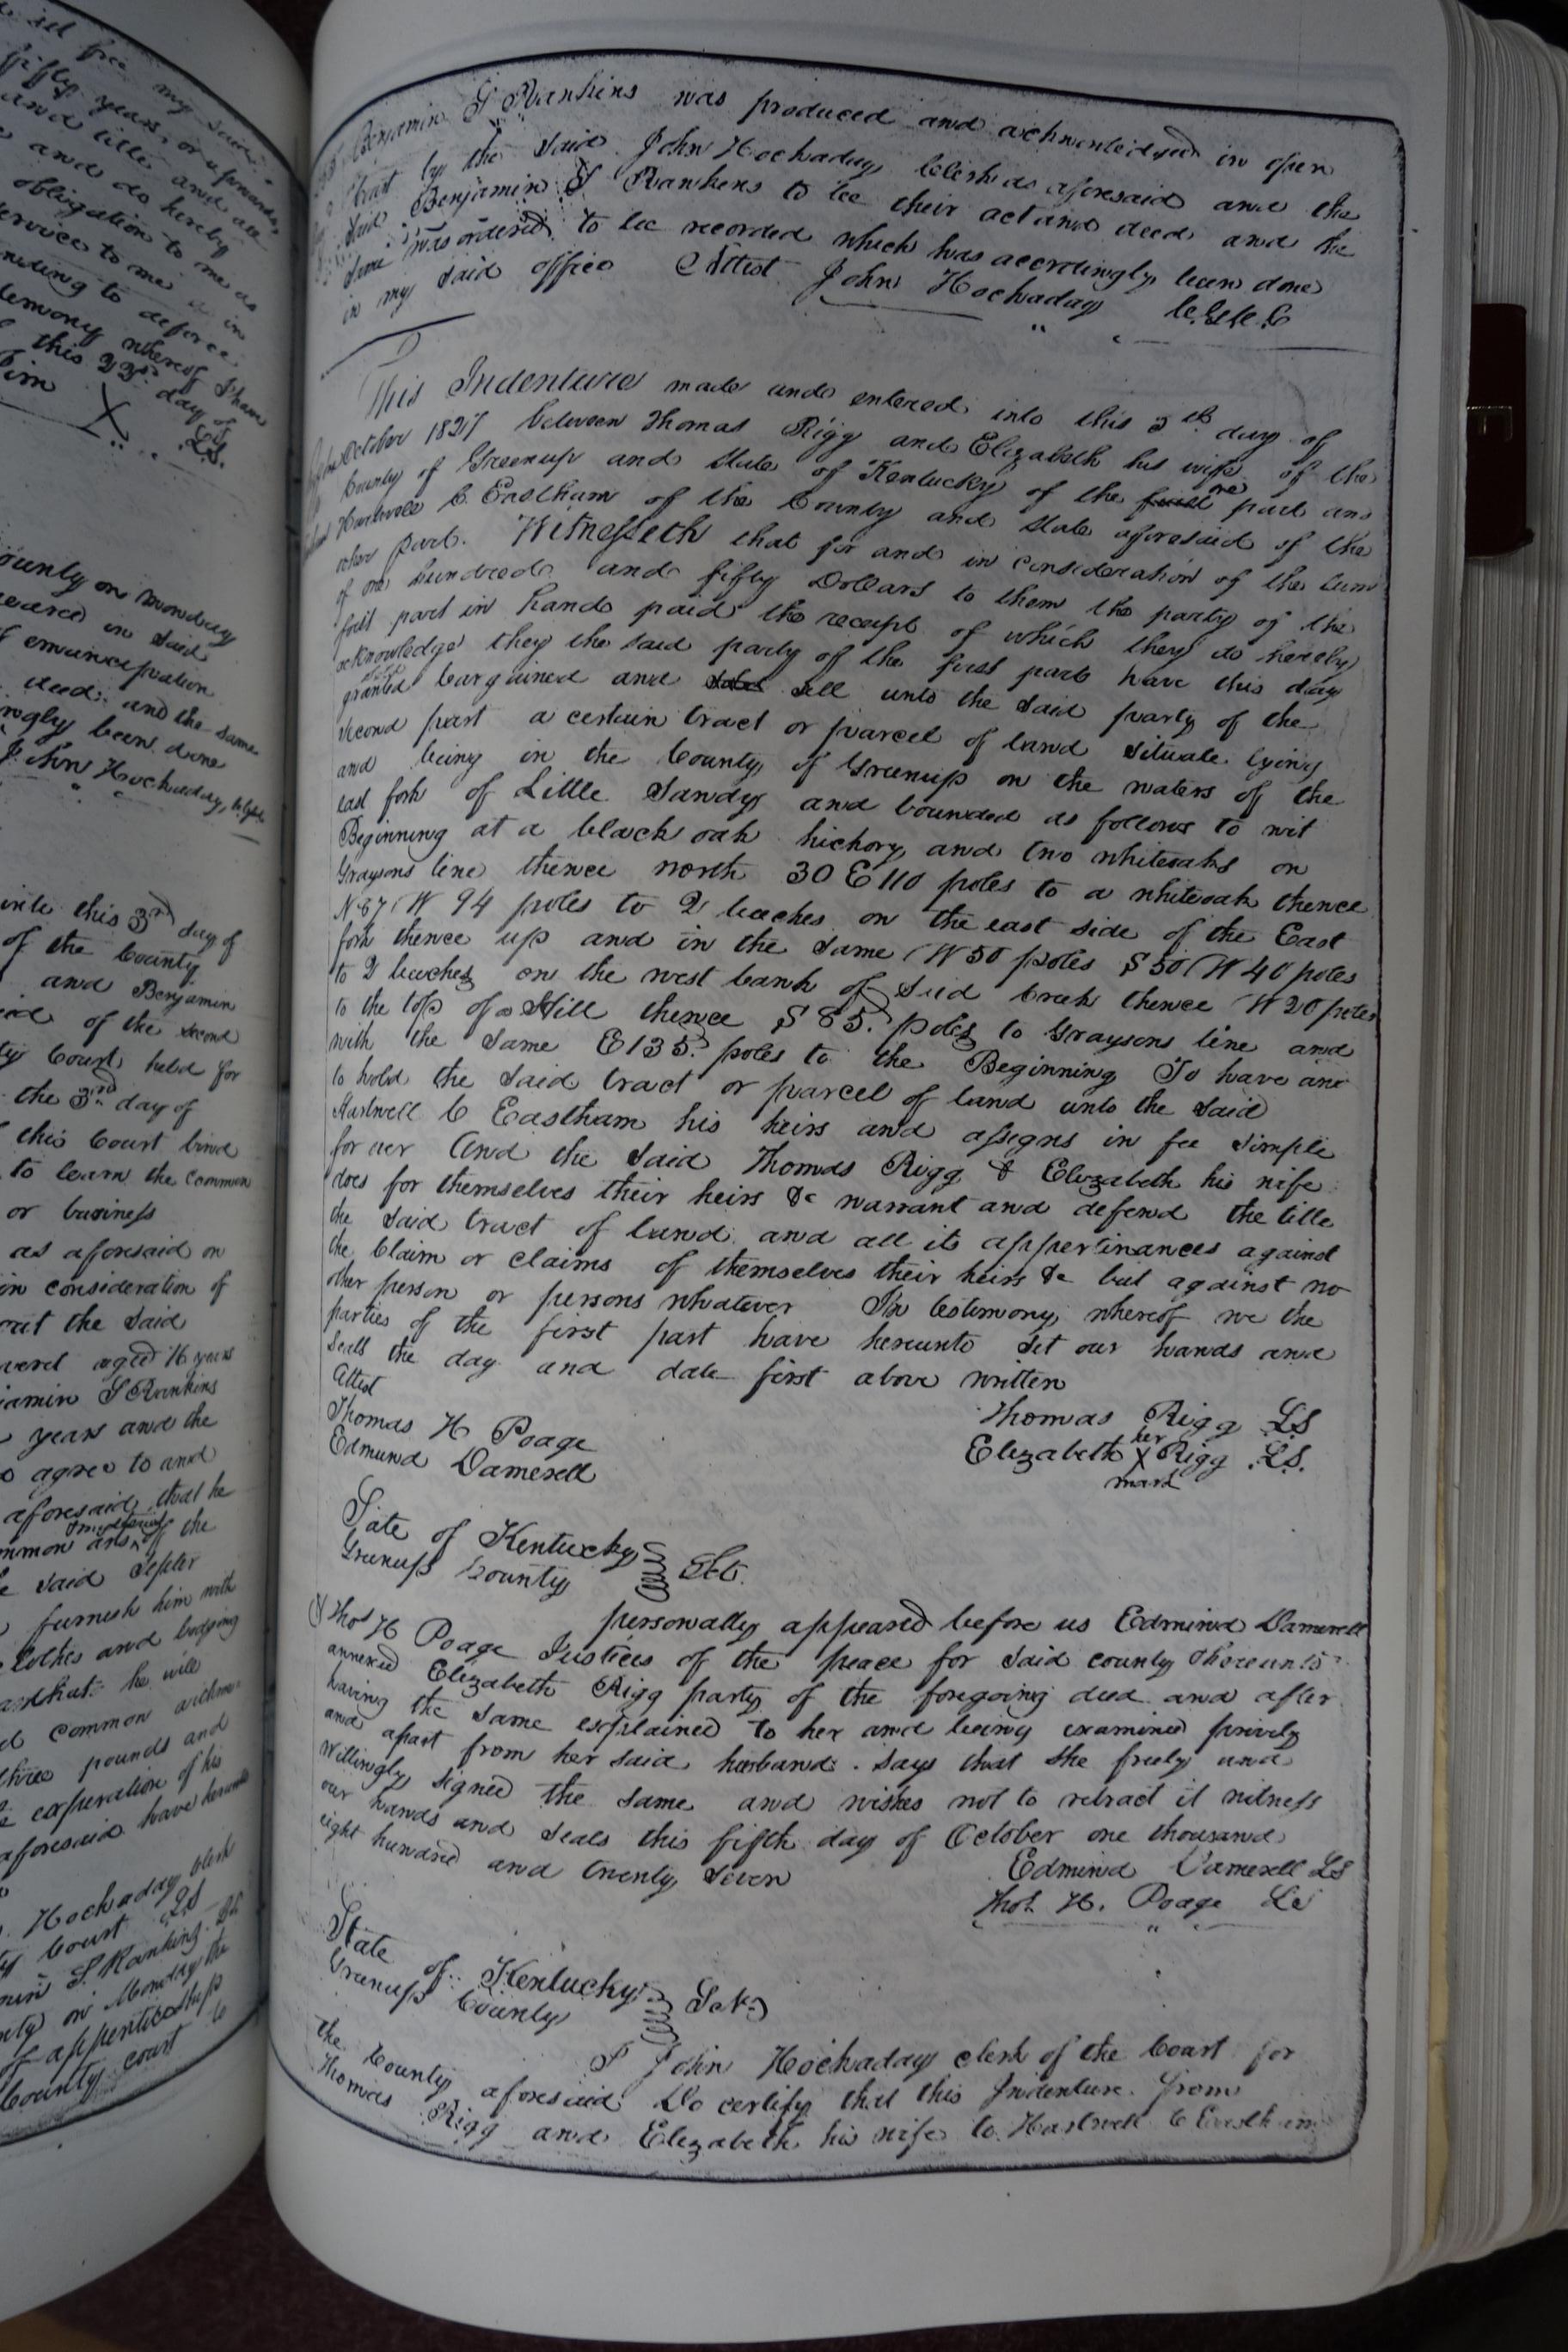 set free my said
fifty years, or upwards,
and title and all
and do hereby
obligation to me as
service to me in
nding to deforce
testimony whereof I have
this 23rd day of
Jim X LS.
County on Monday
peared in said
of emancipation
deed: and the same
ingly been done
John Hockaday, clk
into this 3rd day of
of the County
and Benjamin
of the second
ty Court held for
the 3rd day of
this Court bind
to learn the common
or business
as aforesaid on
in consideration of
out the said
aged 16 years
jamin S Rankins
years and the
agree to and
aforesaid, that he
mmon of the
said Jefter
furnish him with
clothes and lodging
and that he will
common arithme
three pounds and
expiration of his
aforesaid have hereunto
Hockaday clerk
ty Court LS
min S. Rankins LS
nty on Monday the
of apprenticeship
County court
Benjamin S Rankins was produced and acknowledged in open
Court by the said John Hockaday Clerk as aforesaid and the
said Benjamin S Rankins to be their act and deed and the
same was ordered to be recorded which has accordingly been done
in my said office Attest John Hockaday C.G.C.C
This Indenture made and entered into this 5th day of
October 1827 between Thomas Rigg and Elizabeth his wife of the
County of Greenup and State of Kentucky of the one part and
Hartwell C Eastham of the County and State aforesaid of the
other part. Witnesseth that for and in consideration of the sum
of one hundred and fifty Dollars to them the party of the
first part in hand paid the receipt of which they do hereby
acknowledge they the said party of the first part have this day
granted bargained and sell unto the said party of the
second part a certain tract or parcel of land situate lying
and being in the County of Greenup on the waters of the
east fork of Little Sandy and bounded as follows to wit
Beginning at a black oak hickory and two whiteoaks on
Graysons line thence north 30 E 110 poles to a whiteoak thence
N 67 W 94 poles to 2 beaches on the east side of the East
fork thence up and in the same W 50 poles S 50 W 40 poles
to 2 beaches on the west bank of said Creek thence W 20 poles
to the top of a Hill thence S 85. poles to Graysons line and
with the same E 135. poles to the Beginning To have and
to hold the said tract or parcel of land unto the said
Hartwell C Eastham his heirs and assigns in fee simple
for ever And the said Thomas Rigg & Elizabeth his wife
does for themselves their heirs &c warrant and defend the title
the said tract of land and all its appertinances against
the Claim or claims of themselves their heirs &c but against no
other person or persons whatever In testimony whereof we the
parties of the first part have hereunto set our hands and
seals the day and date first above written
Attest
Thomas H Poage
Edmund Damerell
Thomas Rigg LS
Elizabeth her X mark Rigg LS.
State of Kentucky
Greenup County Sct.
personally appeared before us Edmund Damerell
& Thos H Poage Justices of the peace for said county thereunto
annexed Elizabeth Rigg party of the foregoing deed and after
having the same explained to her and being examined privily
and apart from her said husband. says that she freely and
willingly signed the same and wishes not to retract it witness
our hands and seals this fifth day of October one thousand
eight hundred and twenty seven
Edmund Damerell LS
Thos. H. Poage LS
State of Kentucky
Greenup County Sct
I John Hockaday clerk of the Court for
the County aforesaid Do certify that this Indenture from
Thomas Rigg and Elizabeth his wife to Hartwell C Eastham